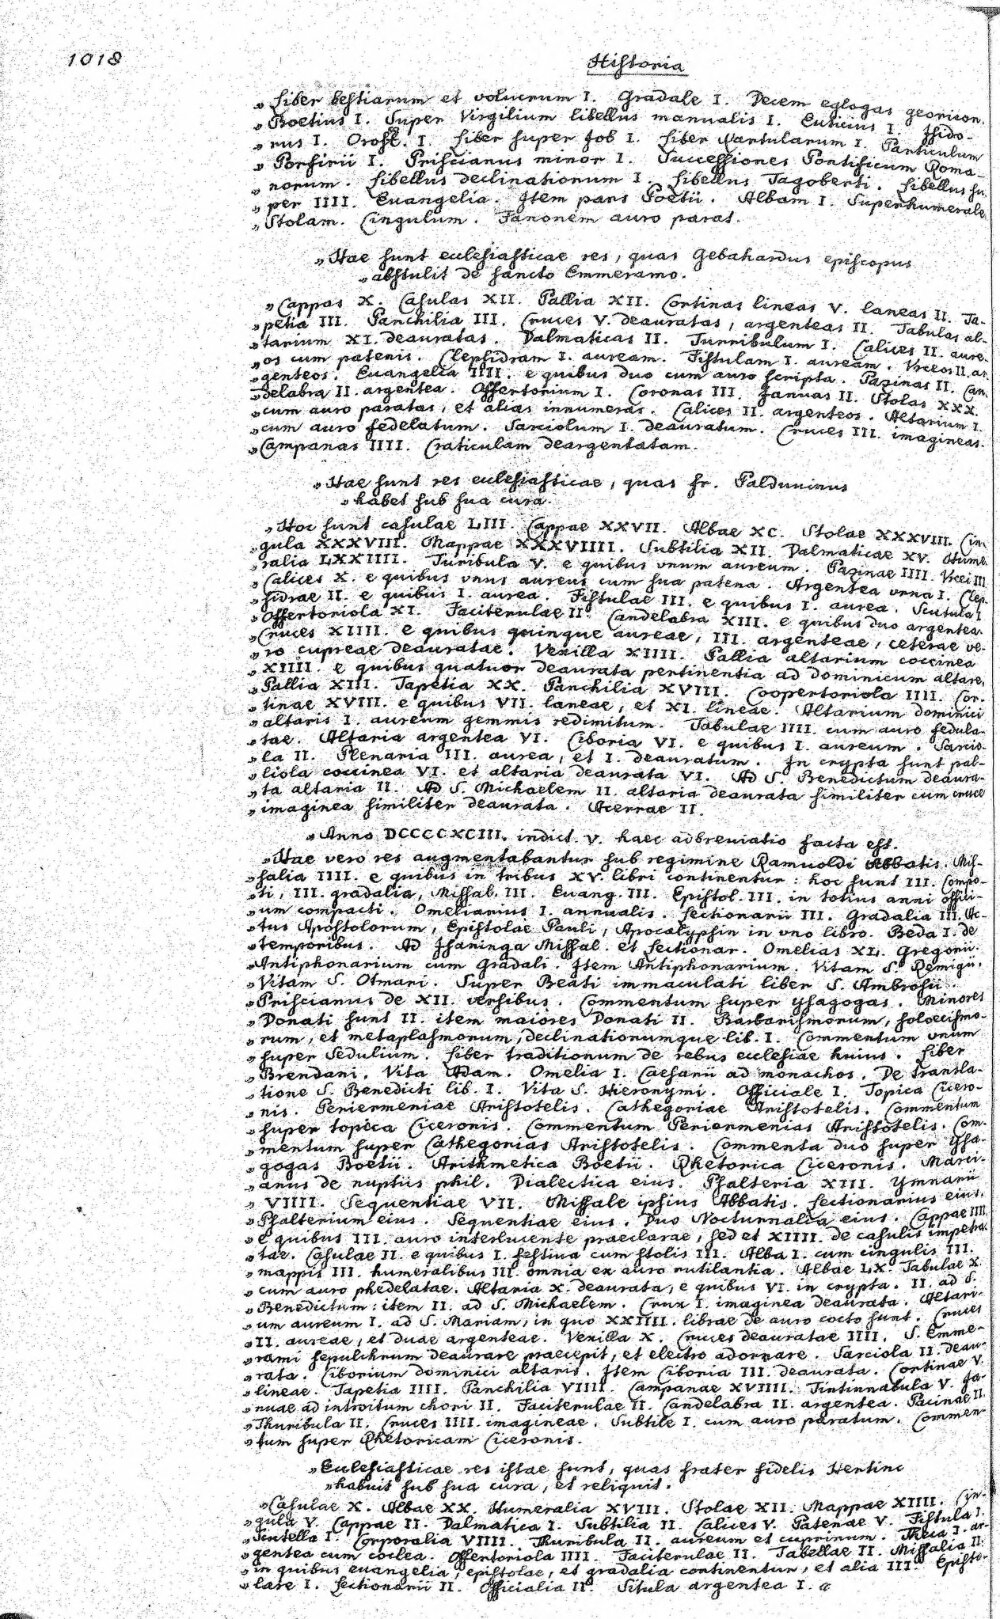 1018
Historia
„Liber bestiarum et volucrum I. Gradale I. Decem eglogas georicon.
„Boetius I. Super Virgilium libellus manualis I. Euticius I. Isido-
„rus I. Oros. I. Liber super Job I. Liber I. Particulum
„Porfirii I. Priscianus minor I. Successiones Pontificum Roma-
„norum. Libellus declinationum I. Libellus Tagoberti. Libellus su-
„per IIII. Evangelia. Item pars Poetii. Albam I. Superhumerale
„Stolam. Cingulum. Fanonem auro parat.
„Hae sunt ecclesiasticae res, quas Gebahardus episcopus
„abstulit de sancto Emmeramo.
„Cappas X. Casulas XII. Pallia XII. Cortinas lineas V. laneas II. Ta-
„petia III. Panchilia III. Cruces V. deauratas, argenteas II. Tabulas al-
„tarium XI. deauratas. Dalmaticas II. Turribulum I. Calices II. aure-
„os cum patenis. Clepsidram I. auream. Fistulam I. auream. Vrceos II. ar-
„genteos. Evangelia IIII. e quibus duo cum auro scripta. Pazinas II. Can-
„delabra II. argentea. Offertorium I. Coronas III. Januas II. Stolas XXX.
„cum auro paratas, et alias innumeras. Calices II. argenteos. Altarium I.
„cum auro fedelatum. Sarciolum I. deauratum. Cruces III. imagineas.
„Campanas IIII. Craticulam deargentatam.
„Hae sunt res ecclesiasticae, quas fr. Palduuinus
„habet sub sua cura.
„Hoc sunt casulae LIII. Cappae XXVII. Albae XC. Stolae XXXVIII. Cin-
„gula XXXVIII. Mappae XXXVIIII. Subtilia XII. Dalmaticae XV. Hume-
„ralia LXXIIII. Turibula V. e quibus vnum aureum. Pazinae IIII. Vrcei III.
„Calices X. e quibus vnus aureus cum sua patena. Argentea vrna I. Clep-
„sidrae II. e quibus I. aurea. Fistulae III. e quibus I. aurea. Scutula I.
„Offertoriola XI. Faciterulae II. Candelabra XIII. e quibus duo argentea.
„Cruces XIIII. e quibus quinque aureae, III. argenteae, ceterae ve-
„ro cupreae deauratae. Vexilla XIIII. Pallia altarium coccinea
„XIIII. e quibus quatuor deaurata pertinentia ad dominicum altare,
„Pallia XIII. Tapetia XX. Panchilia XVIII. Coopertoriola IIII. Cor-
„tinae XVIII. e quibus VII. laneae, et XI. lineae. Altarium dominici
„altaris I. aureum gemmis redimitum. Tabulae IIII. cum auro fedula-
„tae. Altaria argentea VI. Ciboria VI. e quibus I. aureum. Sarcio-
„la II. Plenaria III. aurea, et I. deauratum. In crypta sunt pal-
„liola coccinea VI. et altaria deaurata VI. Ad S. Benedictum deaura-
„ta altaria II. Ad S. Michaelem II. altaria deaurata similiter cum cruce
„imaginea similiter deaurata. Acerrae II.
„Anno DCCCCXCIII. indict. V. haec adbreviatio facta est.
„Hae vero res augmentabantur sub regimine Ramuoldi Abbatis. Mis-
„salia IIII. e quibus in tribus XV. libri continentur: hoc sunt III. Compo-
„ti, III. gradalia, Missal. III. Euang. III. Epistol. III. in totius anni offici-
„um compacti. Omelianius I. annualis. Lectionarii III. Gradalia III. Ac-
„tus Apostolorum, Epistolae Pauli, Apocalypsin in vno libro. Beda I. de
„temporibus. Ad Isaninga Missal. et Lectionar. Omelias XL. Gregorii.
„Antiphonarium cum Gradali. Item Antiphonarium. Vitam S. Remigii.
„Vitam S. Otmari. Super Beati immaculati liber S. Ambrosii.
„Priscianus de XII. versibus. Commentum super ysagogas. Minores
„Donati sunt II. item maiores Donati II. Barbarismorum, soloecismo-
„rum, et metaplasmorum, declinationumque lib. I. Commentum vnum
„super Sedulium. Liber traditionum de rebus ecclesiae huius. Liber
„Brendani. Vita Adam. Omelia I. Caesarii ad monachos. De transla-
„tione S. Benedicti lib. I. Vita S. Hieronymi. Officiale I. Topica Cicero-
„nis. Periermeniae Aristotelis. Cathegoriae Aristotelis. Commentum
„super topica Ciceronis. Commentum Perierminias Aristotelis. Com-
„mentum super Cathegorias Aristotelis. Commenta duo super Ysa-
„gogas Boetii. Arithmetica Boetii. Rhetorica Ciceronis. Marci-
„anus de nuptiis phil. Dialectica eius. Psalteria XIII. Ymnarii
„VIIII. Sequentiae VII. Missale ipsius Abbatis. Lectionarius eius.
„Psalterium eius. Sequentiae eius. Duo Nocturnalia eius. Cappae IIII.
„e quibus III. auro interlucente praeclarae, sed et XIIII. de casulis impetra-
„tae. Casulae II. e quibus I. festiva cum stolis III. Alba I. cum cingulis III.
„mappis III. humeralibus III. omnia ex auro rutilantia. Albae LX. Tabulae X.
„cum auro phedelatae. Altaria X. deaurata, e quibus VI. in crypta. II. ad S.
„Benedictum: item II. ad S. Michaelem. Crux I. imaginea deaurata. Altari-
„um aureum I. ad S. Mariam, in quo XXIIII. librae de auro cocto sunt. Cruces
„II. aureae, et duae argenteae. Vexilla X. Cruces deauratae IIII. S. Emme-
„rami sepulchrum deaurare praecepit, et electro adornare. Sarciola II. deau-
„rata. Ciborium dominici altaris. Item Ciboria III. deaurata. Cortinae V.
„lineae. Tapetia IIII. Panchilia VIIII. Campanae XVIIII. Tintinnabula V. Ja-
„nuae ad introitum chori II. Faciterulae II. Candelabra II. argentea. Pacinae II.
„Thuribula II. Cruces IIII. imagineae. Subtile I. cum auro paratum. Commen-
„tum super Rhetoricam Ciceronis.
„Ecclesiasticae res istae sunt, quas frater fidelis Hertinc
„habuit sub sua cura, et reliquit.
„Casulae X. Albae XX. Humeralia XVIII. Stolae XII. Mappae XIIII. Cin-
„gula V. Cappae II. Dalmatica I. Subtilia II. Calices V. Patenae V. Fistula I.
„Scutella I. Corporalia VIIII. Thuribula II. aureum et cuprinum. Theca I. ar-
„gentea cum coclea. Offertoriola IIII. Faciterulae II. Tabellae II. Missalia II.
„in quibus evangelia, epistolae, et gradalia continentur, et alia III. Episto-
„lare I. Lectionarii II. Officialia II. Situla argentea I.